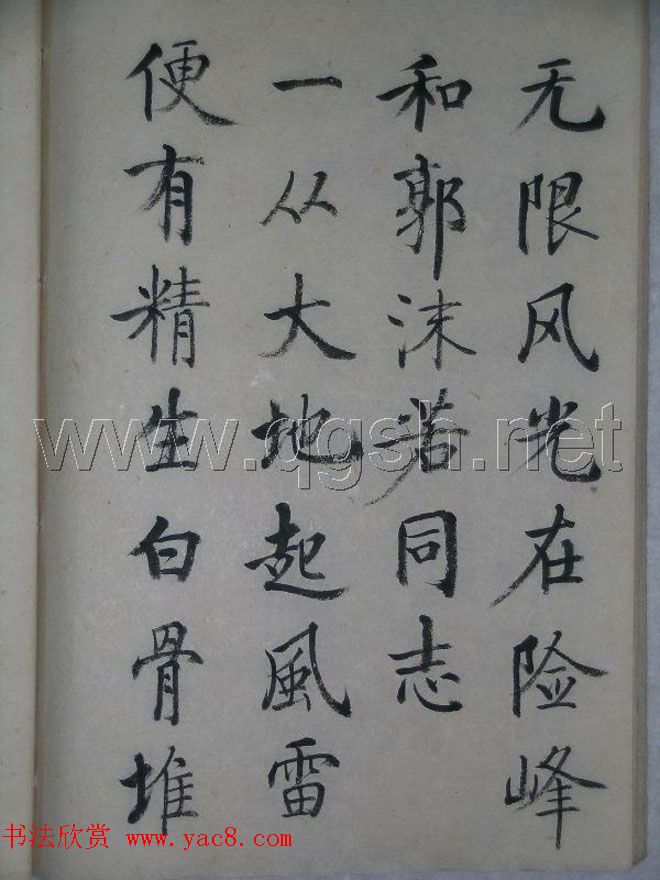 无限风光在险峰
和郭沫若同志
一从大地起風雷
便有精生白骨堆
www.qgsh.net
书法欣赏 www.yac8.com